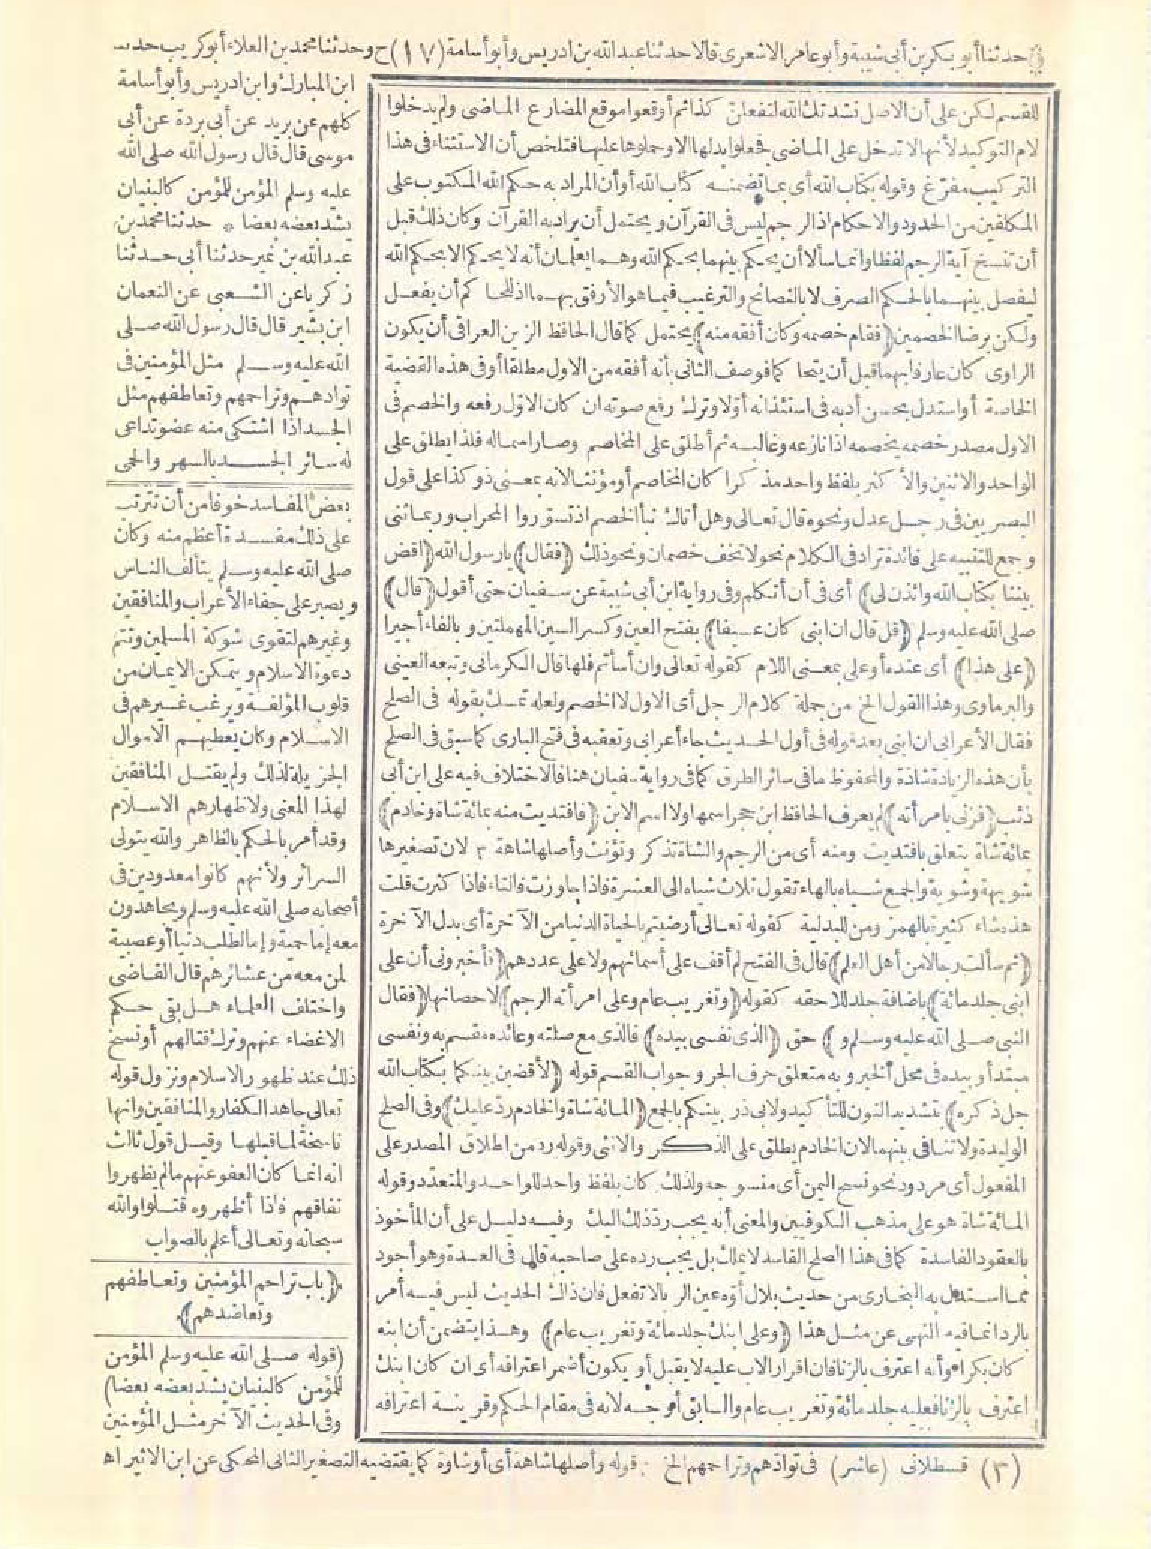 حدثنا أبو بكر بن أبي شيبة وأبو عامر الاشعرى قالا حدثنا عبد الله بن ادريس وأبو أسامة (١٧) ح وحدثنا محمد بن العلاء أبو كريب حدثنا
للقسم لكن على أن الاصل نشدتك الله لتفعلن كذا ثم أوقعوا موقع المضارع الماضى ولم يدخلوا
لام التوكيد لأنها لا تدخل على الماضى فجعلوا بدلها الا وحملوها عليها فتلخص أن الاستثناء فى هذا
التركيب مفرّغ وقوله بكتاب الله أى بما تضمنه كتاب الله أو أن المراد به حكم الله المكتوب على
المكلفين من الحدود والاحكام اذ الرجم ليس فى القرآن ويحتمل أن يراد به القرآن وكان ذلك قبل
أن تنسخ آية الرجم لفظا وانما سألا أن يحكم بينهما بحكم الله وهما يعلمان أنه لا يحكم الا بحكم الله
ليفصل بينهما بالحكم الصرف لا بالنصائح والترغيب فيما هو الأرفق بهما اذ للحاكم أن يفعل
ولكن برضا الخصمين (فقام خصمه وكان أفقه منه) يحتمل كما قال الحافظ الزين العراقى أن يكون
الراوى كان عارفا بهما قبل أن يتحاكما فوصف الثانى بأنه أفقه من الاول مطلقا أو فى هذه القضية
الخاصة أو استدل بحسن أدبه فى استئذانه أولا وترك رفع صوته ان كان الاول رفعه والخصم فى
الاول مصدر خصمه يخصمه اذا نازعه وغالبه ثم أطلق على المخاصم وصار اسماله فلذا يطلق على
الواحد والاثنين والأكثر بلفظ واحد مذكرا كان المخاصم أو مؤنثا لانه بمعنى ذو كذا على قول
البصريين فى رجل عدل ونحوه قال تعالى وهل أتاك نبأ الخصم اذ تسوّروا المحراب وربما ثنى
وجمع للتنبيه على فائدة تراد فى الكلام نحو لا تخف خصمان ونحو ذلك (فقال) يا رسول الله (اقض
بيننا بكتاب الله وائذن لى) أى فى أن أتكلم وفى رواية ابن أبى شيبة عن سفيان حتى أقول (قال)
صلى الله عليه وسلم (قل قال ان ابنى كان عسيفا) بفتح العين وكسر السين المهملتين وبالفاء أجيرا
(على هذا) أى عنده أو على بمعنى اللام كقوله تعالى وان أسأتم فلها قال الكرمانى وتبعه العينى
والبرماوى وهذا القول الخ من جملة كلام الرجل أى الاول لا الخصم ولعله تمسك بقوله فى الصلح
فقال الأعرابى ان ابنى بعد قوله فى أول الحديث جاء أعرابى وتعقبه فى فتح البارى كما سبق فى الصلح
بأن هذه الزيادة شاذة والمحفوظ ما فى سائر الطرق كما فى رواية سفيان هنا فالاختلاف فيه على ابن أبى
ذئب (فزنى بامرأته) لم يعرف الحافظ ابن حجر اسمها ولا اسم الابن (فافتديت منه بمائة شاة وخادم)
بمائة شاة يتعلق بافتديت ومنه أى من الرجم والشاة تذكر وتؤنث وأصلها شاهة ٣ لان تصغيرها
شويهة وشوية والجمع شياه بالهاء تقول ثلاث شياه الى العشرة فاذا جاوزت فالتاء فاذا كثرت قلت
هذه شاء كثيرة بالهمز ومن للبدلية كقوله تعالى أرضيتم بالحياة الدنيا من الآخرة أى بدل الآخرة
(ثم سألت رجالا من أهل العلم) قال فى الفتح لم أقف على أسمائهم ولا على عددهم (فأخبرونى أن على
ابنى جلد مائة) باضافة جلد للاحقه كقوله (وتغريب عام وعلى امرأته الرجم) لاحصانها (فقال
النبى صلى الله عليه وسلم و) حق (الذى نفسى بيده) فالذى مع صلته وعائده مقسم به ونفسى
مبتدأ وبيده فى محل الخبر وبه متعلق حرف الجر وجواب القسم قوله (لأقضين بينكما بكتاب الله
جل ذكره) بتشديد النون للتأكيد ولابى ذر بينكم بالجمع (المائة شاة والخادم ردّ عليك) وفى الصلح
الوليدة ولا تنافى بينهما لان الخادم يطلق على الذكر والانثى وقوله رد من اطلاق المصدر على
المفعول أى مردود نحو نسج اليمن أى منسوجه ولذلك كان بلفظ واحد للواحد والمتعدد وقوله
المائة شاة هو على مذهب الكوفيين والمعنى أنه يجب ردّ ذلك اليك وفيه دليل على أن المأخوذ
بالعقود الفاسدة كما فى هذا الصلح الفاسد لا يملك بل يجب رده على صاحبه قال فى العدة وهو أجود
مما استدل به البخارى من حديث بلال أوّه عين الربا لا تفعل فان ذاك الحديث ليس فيه أمر
بالرد انما فيه النهى عن مثل هذا (وعلى ابنك جلد مائة وتغريب عام) وهذا يتضمن أن ابنه
كان بكرا وأنه اعترف بالزنا فان اقرار الاب عليه لا يقبل أو يكون أضمر اعترافه أى ان كان ابنك
اعترف بالزنا فعليه جلد مائة وتغريب عام والسابق أوجه لانه فى مقام الحكم وقرينة اعترافه
ابن المبارك وابن ادريس وأبو أسامة
كلهم عن بريد عن أبى بردة عن أبى
موسى قال قال رسول الله صلى الله
عليه وسلم المؤمن للمؤمن كالبنيان
يشد بعضه بعضا * حدثنا محمد بن
عبد الله بن نمير حدثنا أبى حدثنا
زكريا عن الشعبى عن النعمان
ابن بشير قال قال رسول الله صلى
الله عليه وسلم مثل المؤمنين فى
توادهم وتراحمهم وتعاطفهم مثل
الجسد اذا اشتكى منه عضو تداعى
له سائر الجسد بالسهر والحمى
بعض المفاسد خوفا من أن تترتب
على ذلك مفسدة أعظم منه وكان
صلى الله عليه وسلم يتألف الناس
ويصبر على جفاء الأعراب والمنافقين
وغيرهم لتقوى شوكة المسلمين وتتم
دعوة الاسلام ويتمكن الايمان من
قلوب المؤلفة ويرغب غيرهم فى
الاسلام وكان يعطيهم الاموال
الجزيلة لذلك ولم يقتل المنافقين
لهذا المعنى ولاظهارهم الاسلام
وقد أمر بالحكم بالظاهر والله يتولى
السرائر ولأنهم كانوا معدودين فى
أصحابه صلى الله عليه وسلم ويجاهدون
معه إما حمية وإما لطلب دنيا أو عصبية
لمن معه من عشائرهم قال القاضى
واختلف العلماء هل بقى حكم
الاغضاء عنهم وترك قتالهم أو نسخ
ذلك عند ظهور الاسلام ونزول قوله
تعالى جاهد الكفار والمنافقين وانها
ناسخة لما قبلها وقيل قول ثالث
انه انما كان العفو عنهم ما لم يظهروا
نفاقهم فاذا أظهروه قتلوا والله
سبحانه وتعالى أعلم بالصواب
(باب تراحم المؤمنين وتعاطفهم
وتعاضدهم)
(قوله صلى الله عليه وسلم المؤمن
للمؤمن كالبنيان يشد بعضه بعضا)
وفى الحديث الآخر مثل المؤمنين
(٣) قسطلانى (عاشر) فى توادهم وتراحمهم الخ قوله وأصلها شاهة أى أو شاوة كما يقتضيه التصغير الثانى المحكى عن ابن الاثير اه